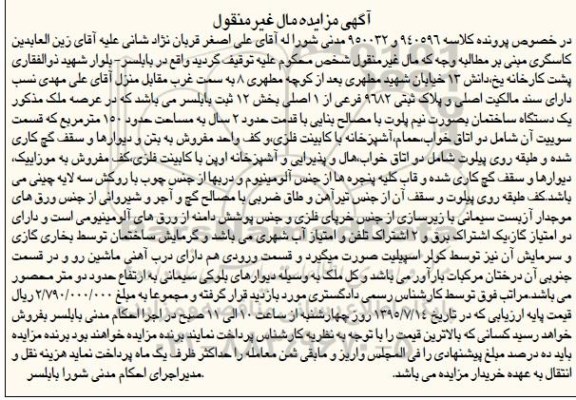 آگهی مزایده مال غیر منقول
در خصوص پرونده کلاسه ۹۴۰۵۹۶ و ۹۵۰۰۳۲ مدنی شورا له آقای علی اصغر قربان نژاد شانی علیه آقای زین العابدین
کاسگری مبنی بر مطالبه وجه که مال غیرمنقول شخص محکوم علیه توقیف گردید واقع در بابلسر- بلوار شهید ذوالفقاری
پشت کارخانه یخ،دانش ۱۳ خیابان شهید مطهری بعد از کوچه مطهری ۸ به سمت غرب مقابل منزل آقای علی مهدی نسب
دارای سند مالکیت اصلی و پلاک ثبتی ۹۶۸۲ فرعی از ۱ اصلی بخش ۱۲ ثبت بابلسر می باشد که در عرصه ملک مذکور
یک دستگاه ساختمان بصورت نیم پلوت با مصالح بنایی با قدمت حدود ۲ سال به مساحت حدود ۱۵۰ مترمربع که قسمت
سوییت آن شامل دو اتاق خواب،حمام،آشپزخانه با کابینت فلزی،و کف واحد مفروش به بتن و دیوارها و سقف گچ کاری
شده و طبقه روی پیلوت شامل دو اتاق خواب،هال و پذیرایی و آشپزخانه اوپن با کابینت فلزی،کف مفروش به موزاییک،
دیوارها و سقف گچ کاری شده و قاب کلیه پنجره ها از جنس آلومینیوم و دربها از جنس چوب با روکش سه لایه چینی می
باشد.کف طبقه روی پیلوت و سقف آن از جنس تیرآهن و طاق ضربی با مصالح گچ و آجر و شیروانی از جنس ورق های
موجدار آزبست سیمانی با زیرسازی از جنس خرپای فلزی و جنس پوشش دامنه از ورق های آلومینیومی است و دارای
دو امتیاز گاز،یک اشتراک برق و ۲ اشتراک تلفن و امتیاز آب شهری می باشد و گرمایش ساختمان توسط بخاری گازی
و سرمایش آن نیز توسط کولر اسپیلیت صورت میگیرد و قسمت ورودی هم دارای درب آهنی ماشین رو و در قسمت
جنوبی آن درختان مرکبات بارآور می باشد و کل ملک به وسیله دیوارهای بلوکی سیمانی به ارتفاع حدود دو متر محصور
می باشد.مراتب فوق توسط کارشناس رسمی دادگستری مورد بازدید قرار گرفته و مجموعا به مبلغ ۲/۷۹۰/۰۰۰/۰۰۰ ریال
قیمت پایه ارزیابی که در تاریخ ۱۳۹۵/۷/۱۴ روز چهارشنبه از ساعت ۱۰ الی ۱۱ ظهر در اجرا احکام مدنی بابلسر بفروش
خواهد رسید کسانی که بالاترین قیمت را با توجه به نظریه کارشناس پرداخت نمایند، برنده مزایده خواهند بود برنده مزایده
باید ده درصد مبلغ پیشنهادی را فی المجلس واریز و مابقی ثمن معامله را حداکثر ظرف یک ماه پرداخت نماید هزینه نقل و
انتقال به عهده خریدار مزایده می باشد. مدیراجرای احکام مدنی شورا بابلسر